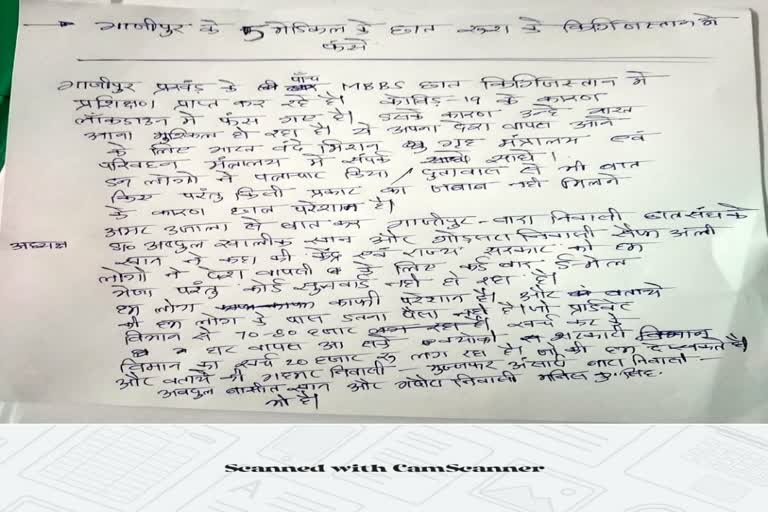 → गाजीपुर के 5 मेडिकल के छात्र रूस के किर्गिजिस्तान में
फंसे
गाजीपुर प्रखंड के पाँच MBBS छात्र किर्गिजस्तान में
प्रशिक्षण प्राप्त कर रहे है। कोविड-19 के कारण
लॉकडाउन में फंस गए है। इसके कारण उन्हें भारत
आना मुश्किल हो रहा है। ये अपना देश वापस आने
के लिए भारत वंदे मिशन गृह मंत्रालय एवं
परिवहन मंत्रालय में संपर्क साधे।
इन लोगो ने पत्राचार किया दुतावास से भी बात
किए परंतु किसी प्रकार का जवाब नही मिलने
के कारण छात्र परेशान है।
अमर उजाला से बात कर गाजीपुर - बारा निवासी छात्रसंघ के
अध्यक्ष डा० अबदुल खालीक खान और निवासी अली
खान ने कहा की केंद्र एवं राज्य सरकार को हम
लोगो ने देश वापसी के लिए कई बार ई-मेल
भेजा परंतु कोई सुनवाई नही हो रहा है।
हम लोग काफी परेशान है। और बताये
की हम लोग के पास इतना पैसा नही है। जो प्राईवेट
विमान से 70-80 हजार खर्च कर के
घर वापस आ सके सरकारी
विमान का खर्च 20 हजार रु लग रहा है। जो की हम दे सकते है
और बताये की गहमर निवासी - अंसारी बारा निवासी -
अबदुल बासीत खान और निवासी कु० सिंह
भी है।
Scanned with CamScanner